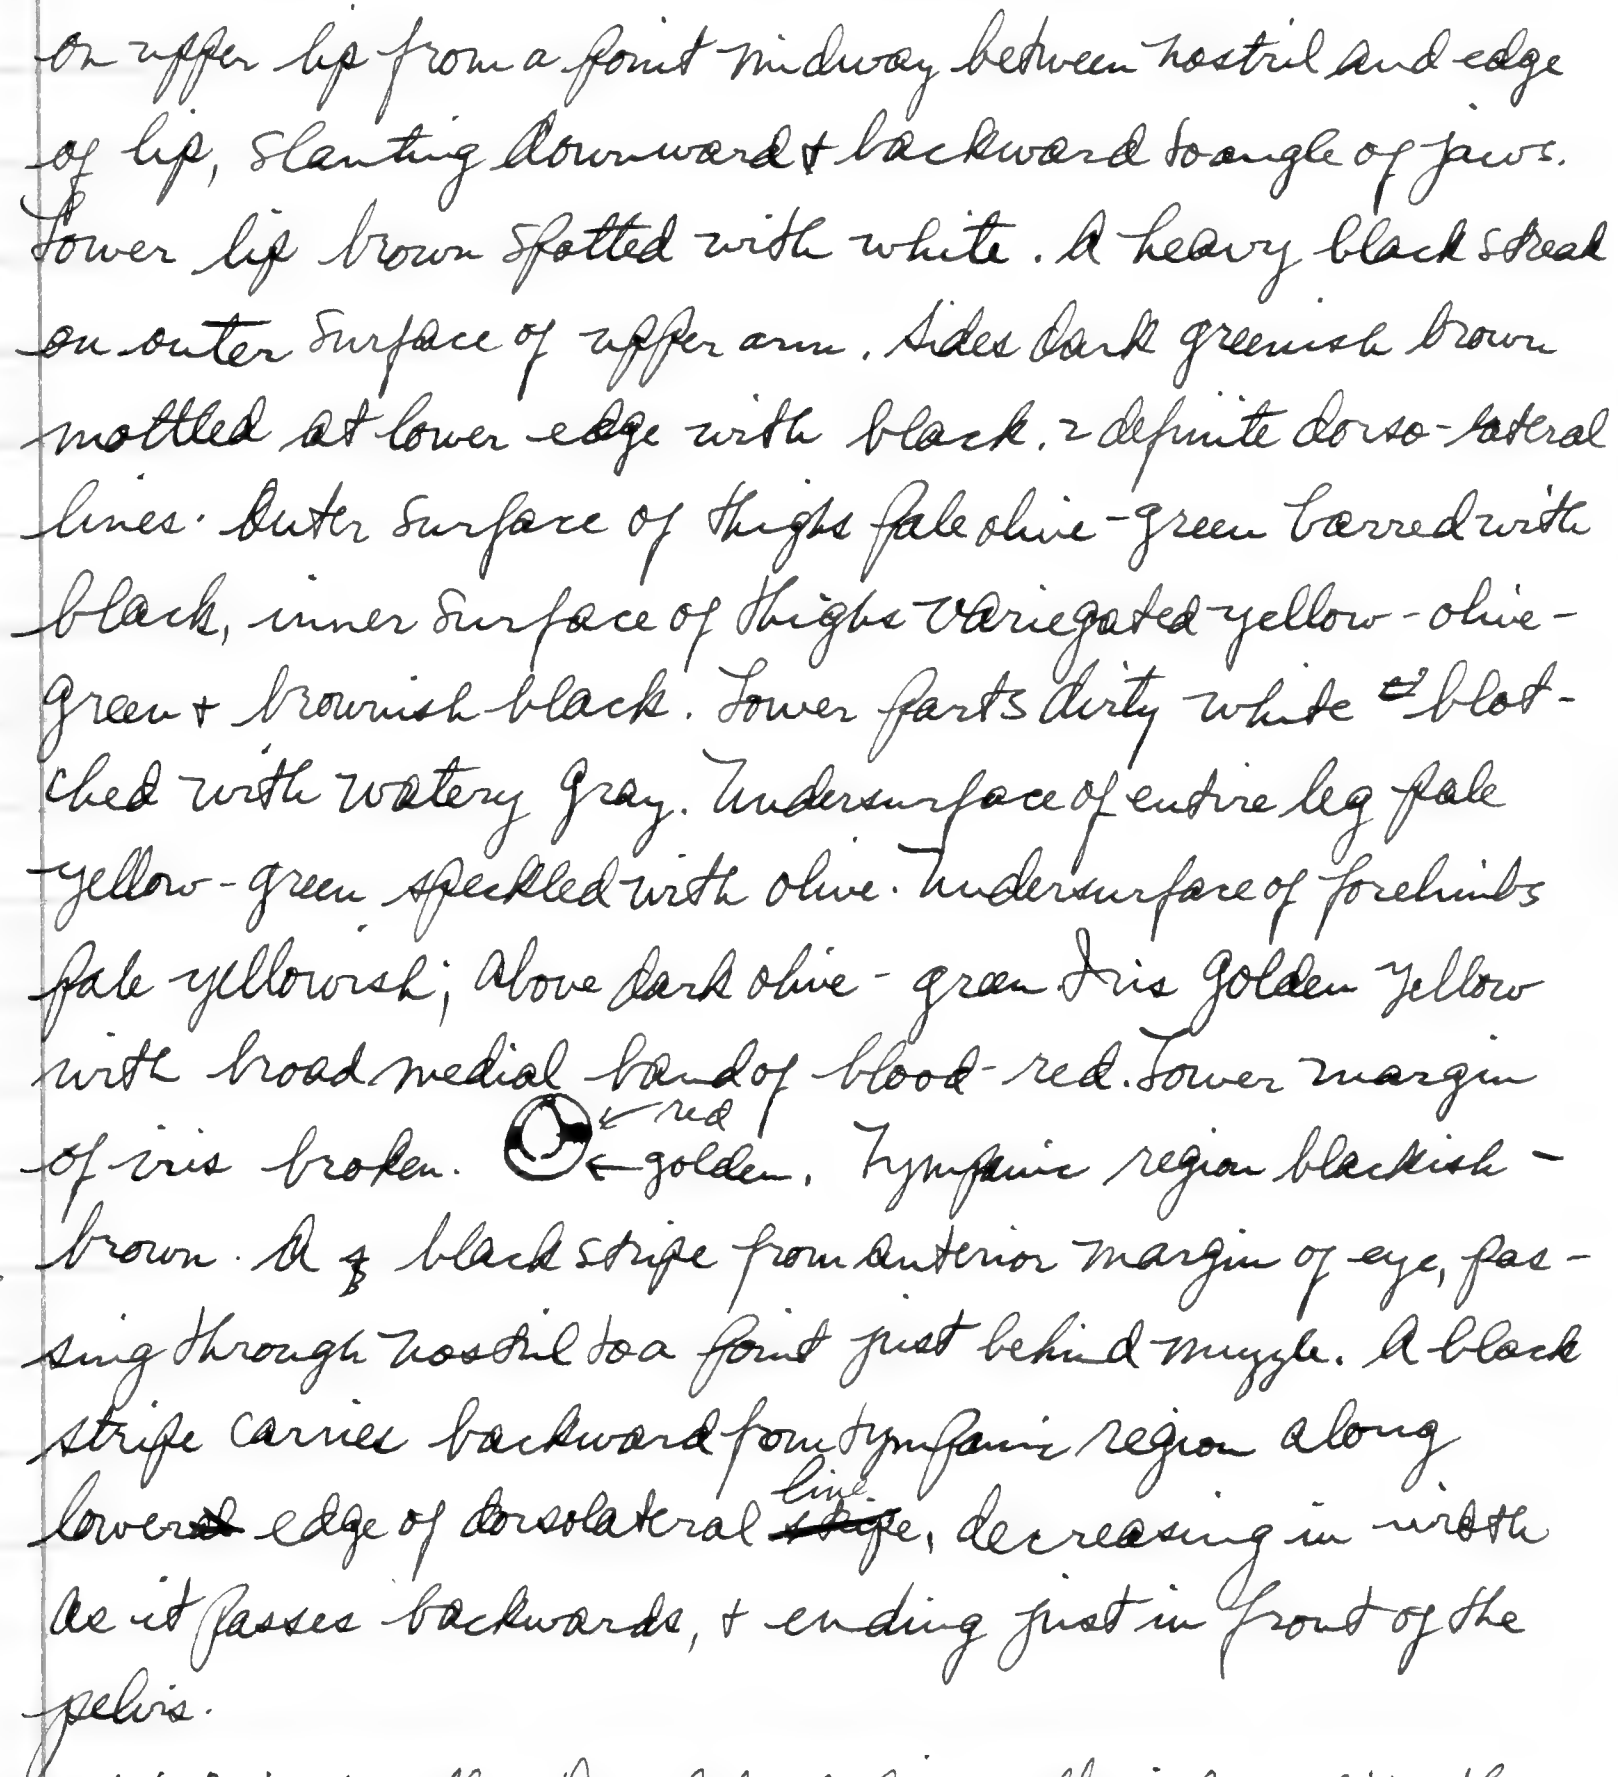 on upper lip from a point midway between nostril and edge
of lip, slanting downward & backward to angle of jaws.
Lower lip brown spotted with white. A heavy black streak
on outer surface of upper arm. Sides dark greenish brown
mottled at lower edge with black. 2 definite dorso-lateral
lines. Outer surface of thighs pale olive-green barred with
black, inner surface of thighs variegated yellow-olive-
green & brownish black. Lower parts dirty white blot-
ched with watery gray. Undersurface of entire leg pale
yellow-green speckled with olive. Undersurface of forelimbs
pale yellowish; above dark olive-green Iris golden yellow
with broad medial band of blood-red. Lower margin
← red
of iris broken. ← golden. Tympanic region blackish-
brown. A black stripe from anterior margin of eye, pas-
sing through nostril to a point just behind muzzle. A black
stripe carries backward from tympanic region along
line
lower edge of dorsolateral stripe, decreasing in width
as it passes backwards, & ending just in front of the
pelvis.